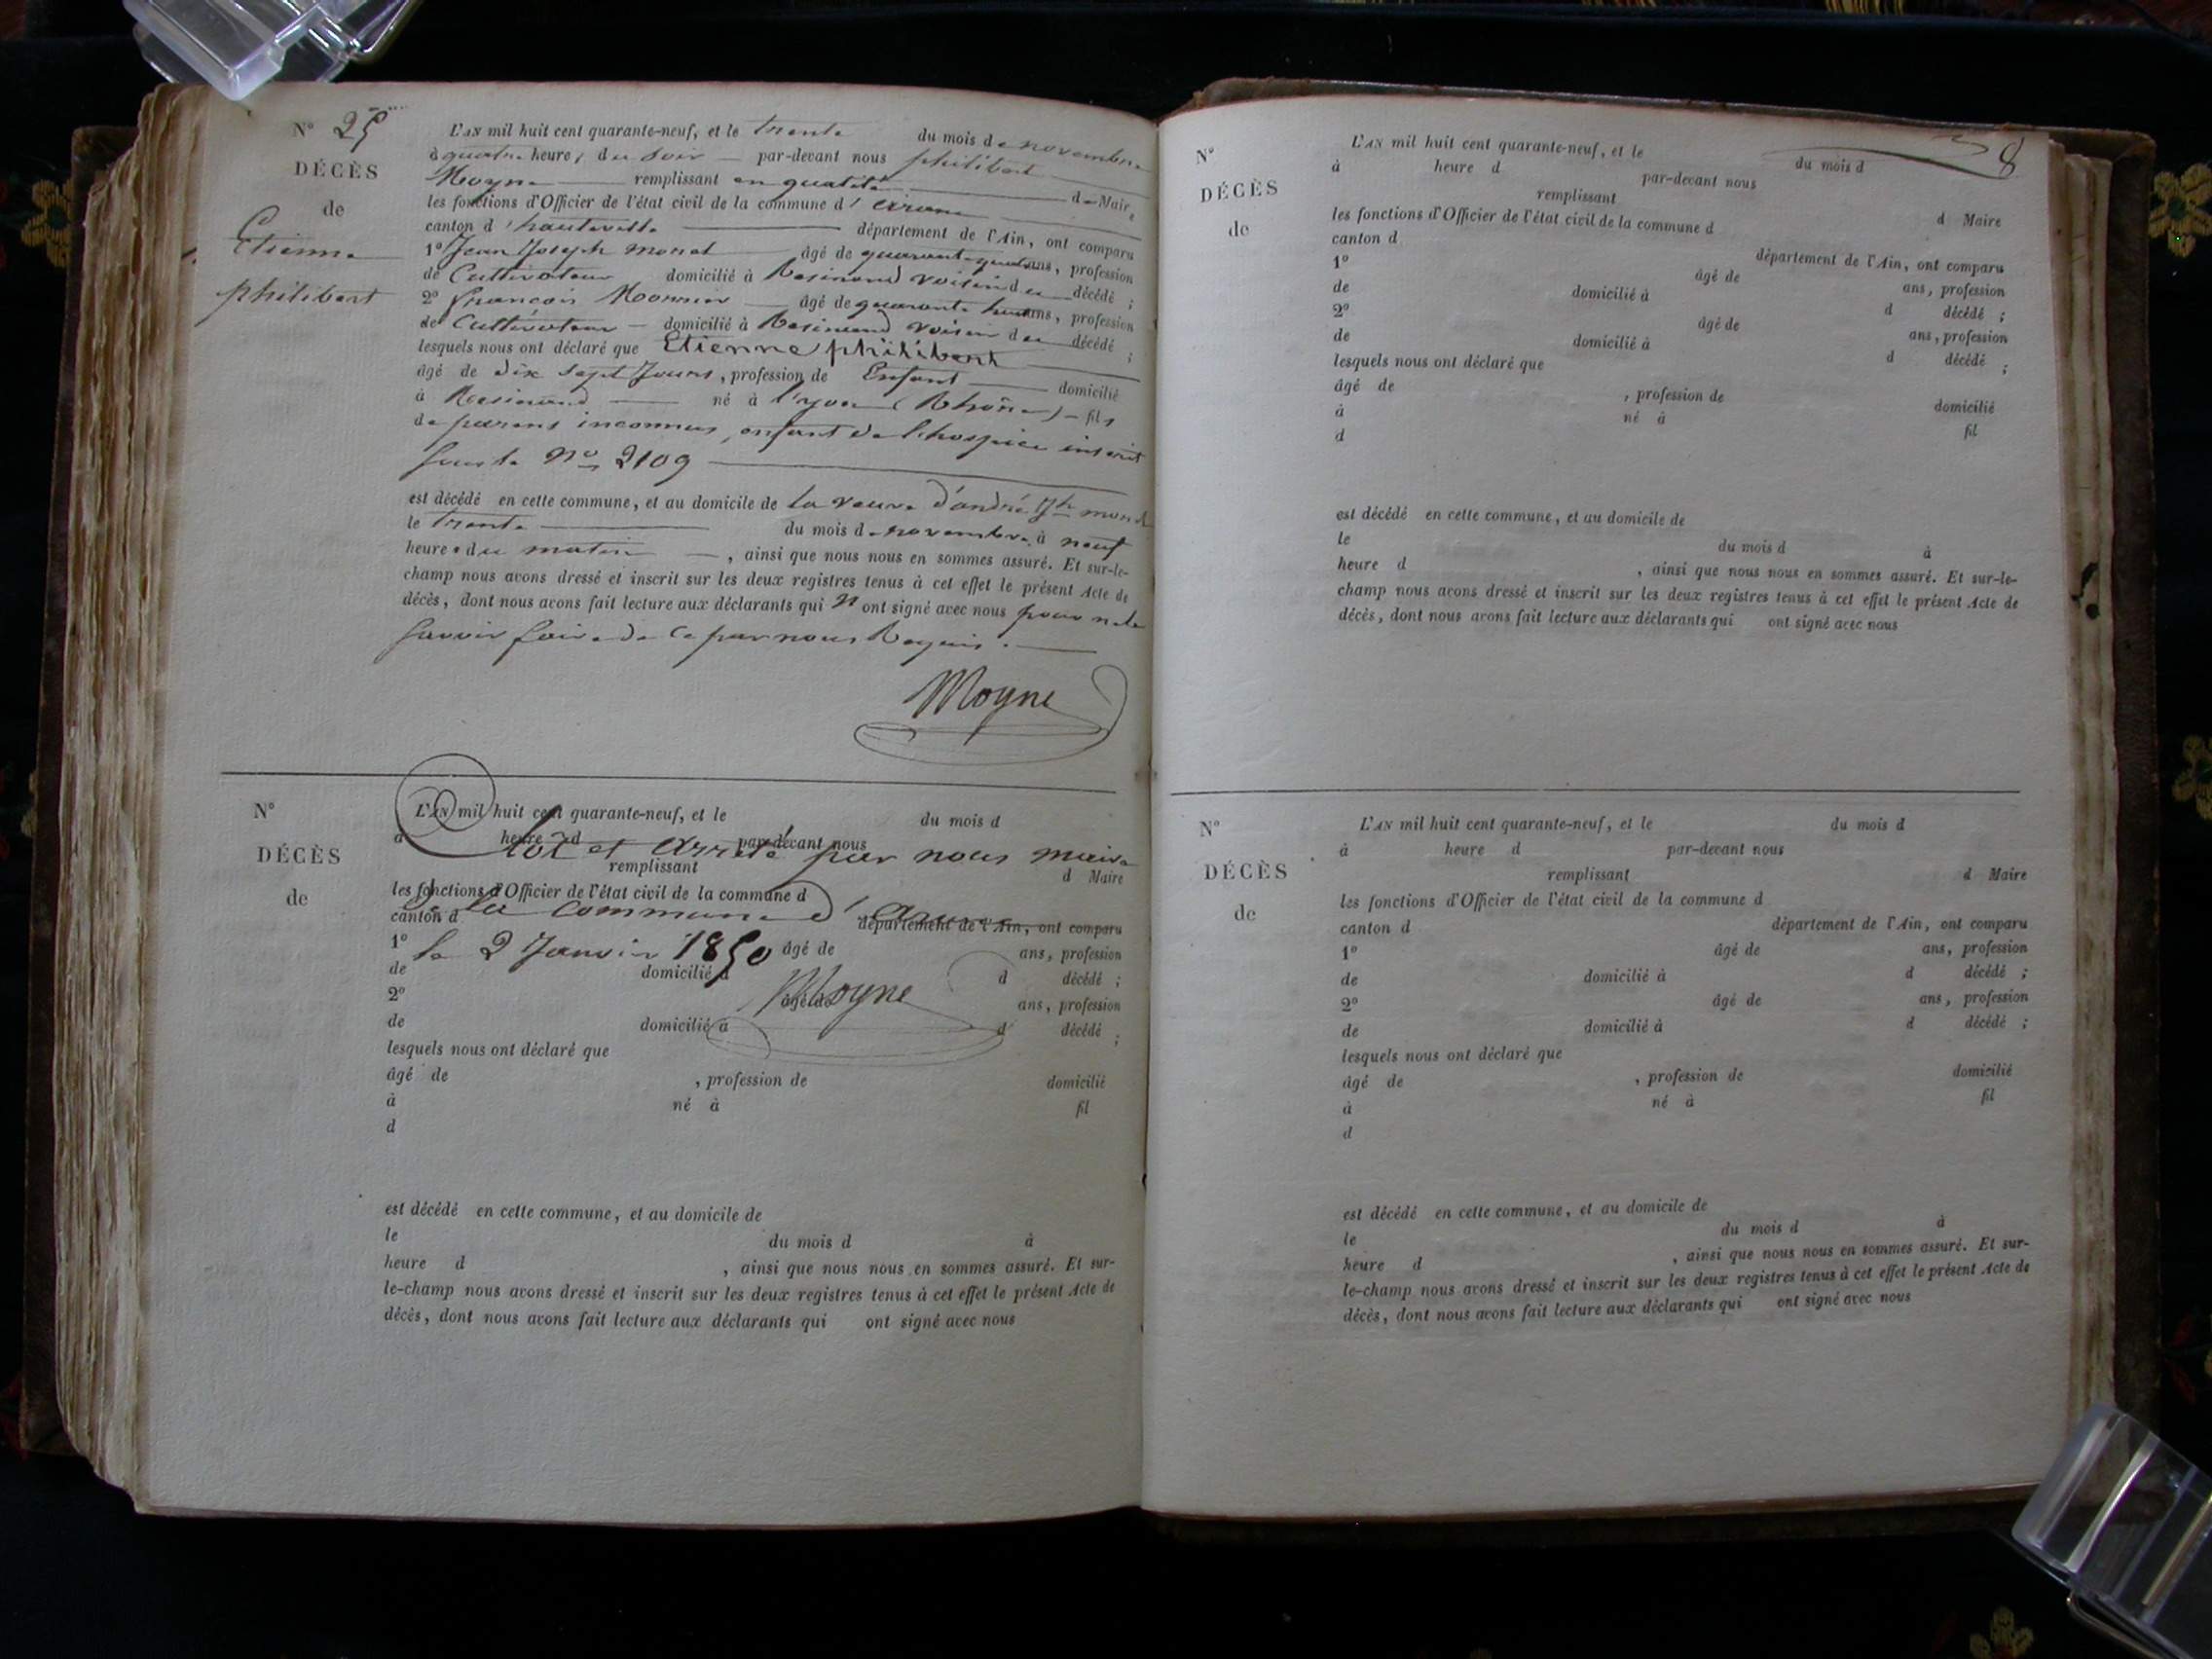 N° 25
DÉCÈS
de
Etienne
philibert
L'AN mil huit cent quarante-neuf, et le trente du mois de novembre
à quatre heures du soir par-devant nous philibert
Moyne remplissant en qualité de Maire
les fonctions d'Officier de l'état civil de la commune d'
canton d'hauteville département de l'Ain, ont comparu
1° Jean Joseph monet âgé de quarante-quatre ans, profession
de Cultivateur domicilié à Resinand voisin du décédé ;
2° françois Monnier âgé de quarante huit ans, profession
de Cultivateur domicilié à Resinand voisin du décédé ;
lesquels nous ont déclaré que Etienne philibert
âgé de dix sept Jours, profession de Enfant domicilié
à Resinand né à l'yon (Rhône) fils
de parens inconnus, enfant de l'hospice inscrit
sous le N° 2109
est décédé en cette commune, et au domicile de la veuve d'andré Jh monet
le trente du mois de novembre à neuf
heures du matin, ainsi que nous nous en sommes assuré. Et sur-le-
champ nous avons dressé et inscrit sur les deux registres tenus à cet effet le présent Acte de
décès, dont nous avons fait lecture aux déclarants qui n'ont signé avec nous pour ne le
savoir faire de ce par nous Requis.
Moyne
N°
DÉCÈS
de
L'AN mil huit cent quarante-neuf, et le du mois d
à heure d par-devant nous
Clos et arrêté par nous maire
remplissant d Maire
les fonctions d'Officier de l'état civil de la commune d
de la commune d'
canton d département de l'Ain, ont comparu
1° le 2 Janvier 1850 âgé de ans, profession
de domicilié à d décédé ;
Moyne
2° âgé de ans, profession
de domicilié à d décédé ;
lesquels nous ont déclaré que
âgé de , profession de domicilié
à né à fil
d
est décédé en cette commune, et au domicile de
le du mois d à
heure d , ainsi que nous nous en sommes assuré. Et sur-
le-champ nous avons dressé et inscrit sur les deux registres tenus à cet effet le présent Acte de
décès, dont nous avons fait lecture aux déclarants qui ont signé avec nous
8
N°
DÉCÈS
de
L'AN mil huit cent quarante-neuf, et le du mois d
à heure d par-devant nous
remplissant d Maire
les fonctions d'Officier de l'état civil de la commune d
canton d département de l'Ain, ont comparu
1° âgé de ans, profession
de domicilié à d décédé ;
2° âgé de ans, profession
de domicilié à d décédé ;
lesquels nous ont déclaré que
âgé de , profession de domicilié
à né à fil
d
est décédé en cette commune, et au domicile de
le du mois d à
heure d , ainsi que nous nous en sommes assuré. Et sur-le-
champ nous avons dressé et inscrit sur les deux registres tenus à cet effet le présent Acte de
décès, dont nous avons fait lecture aux déclarants qui ont signé avec nous
N°
DÉCÈS
de
L'AN mil huit cent quarante-neuf, et le du mois d
à heure d par-devant nous
remplissant d Maire
les fonctions d'Officier de l'état civil de la commune d
canton d département de l'Ain, ont comparu
1° âgé de ans, profession
de domicilié à d décédé ;
2° âgé de ans, profession
de domicilié à d décédé ;
lesquels nous ont déclaré que
âgé de , profession de domicilié
à né à fil
d
est décédé en cette commune, et au domicile de
le du mois d à
heure d , ainsi que nous nous en sommes assuré. Et sur-
le-champ nous avons dressé et inscrit sur les deux registres tenus à cet effet le présent Acte de
décès, dont nous avons fait lecture aux déclarants qui ont signé avec nous